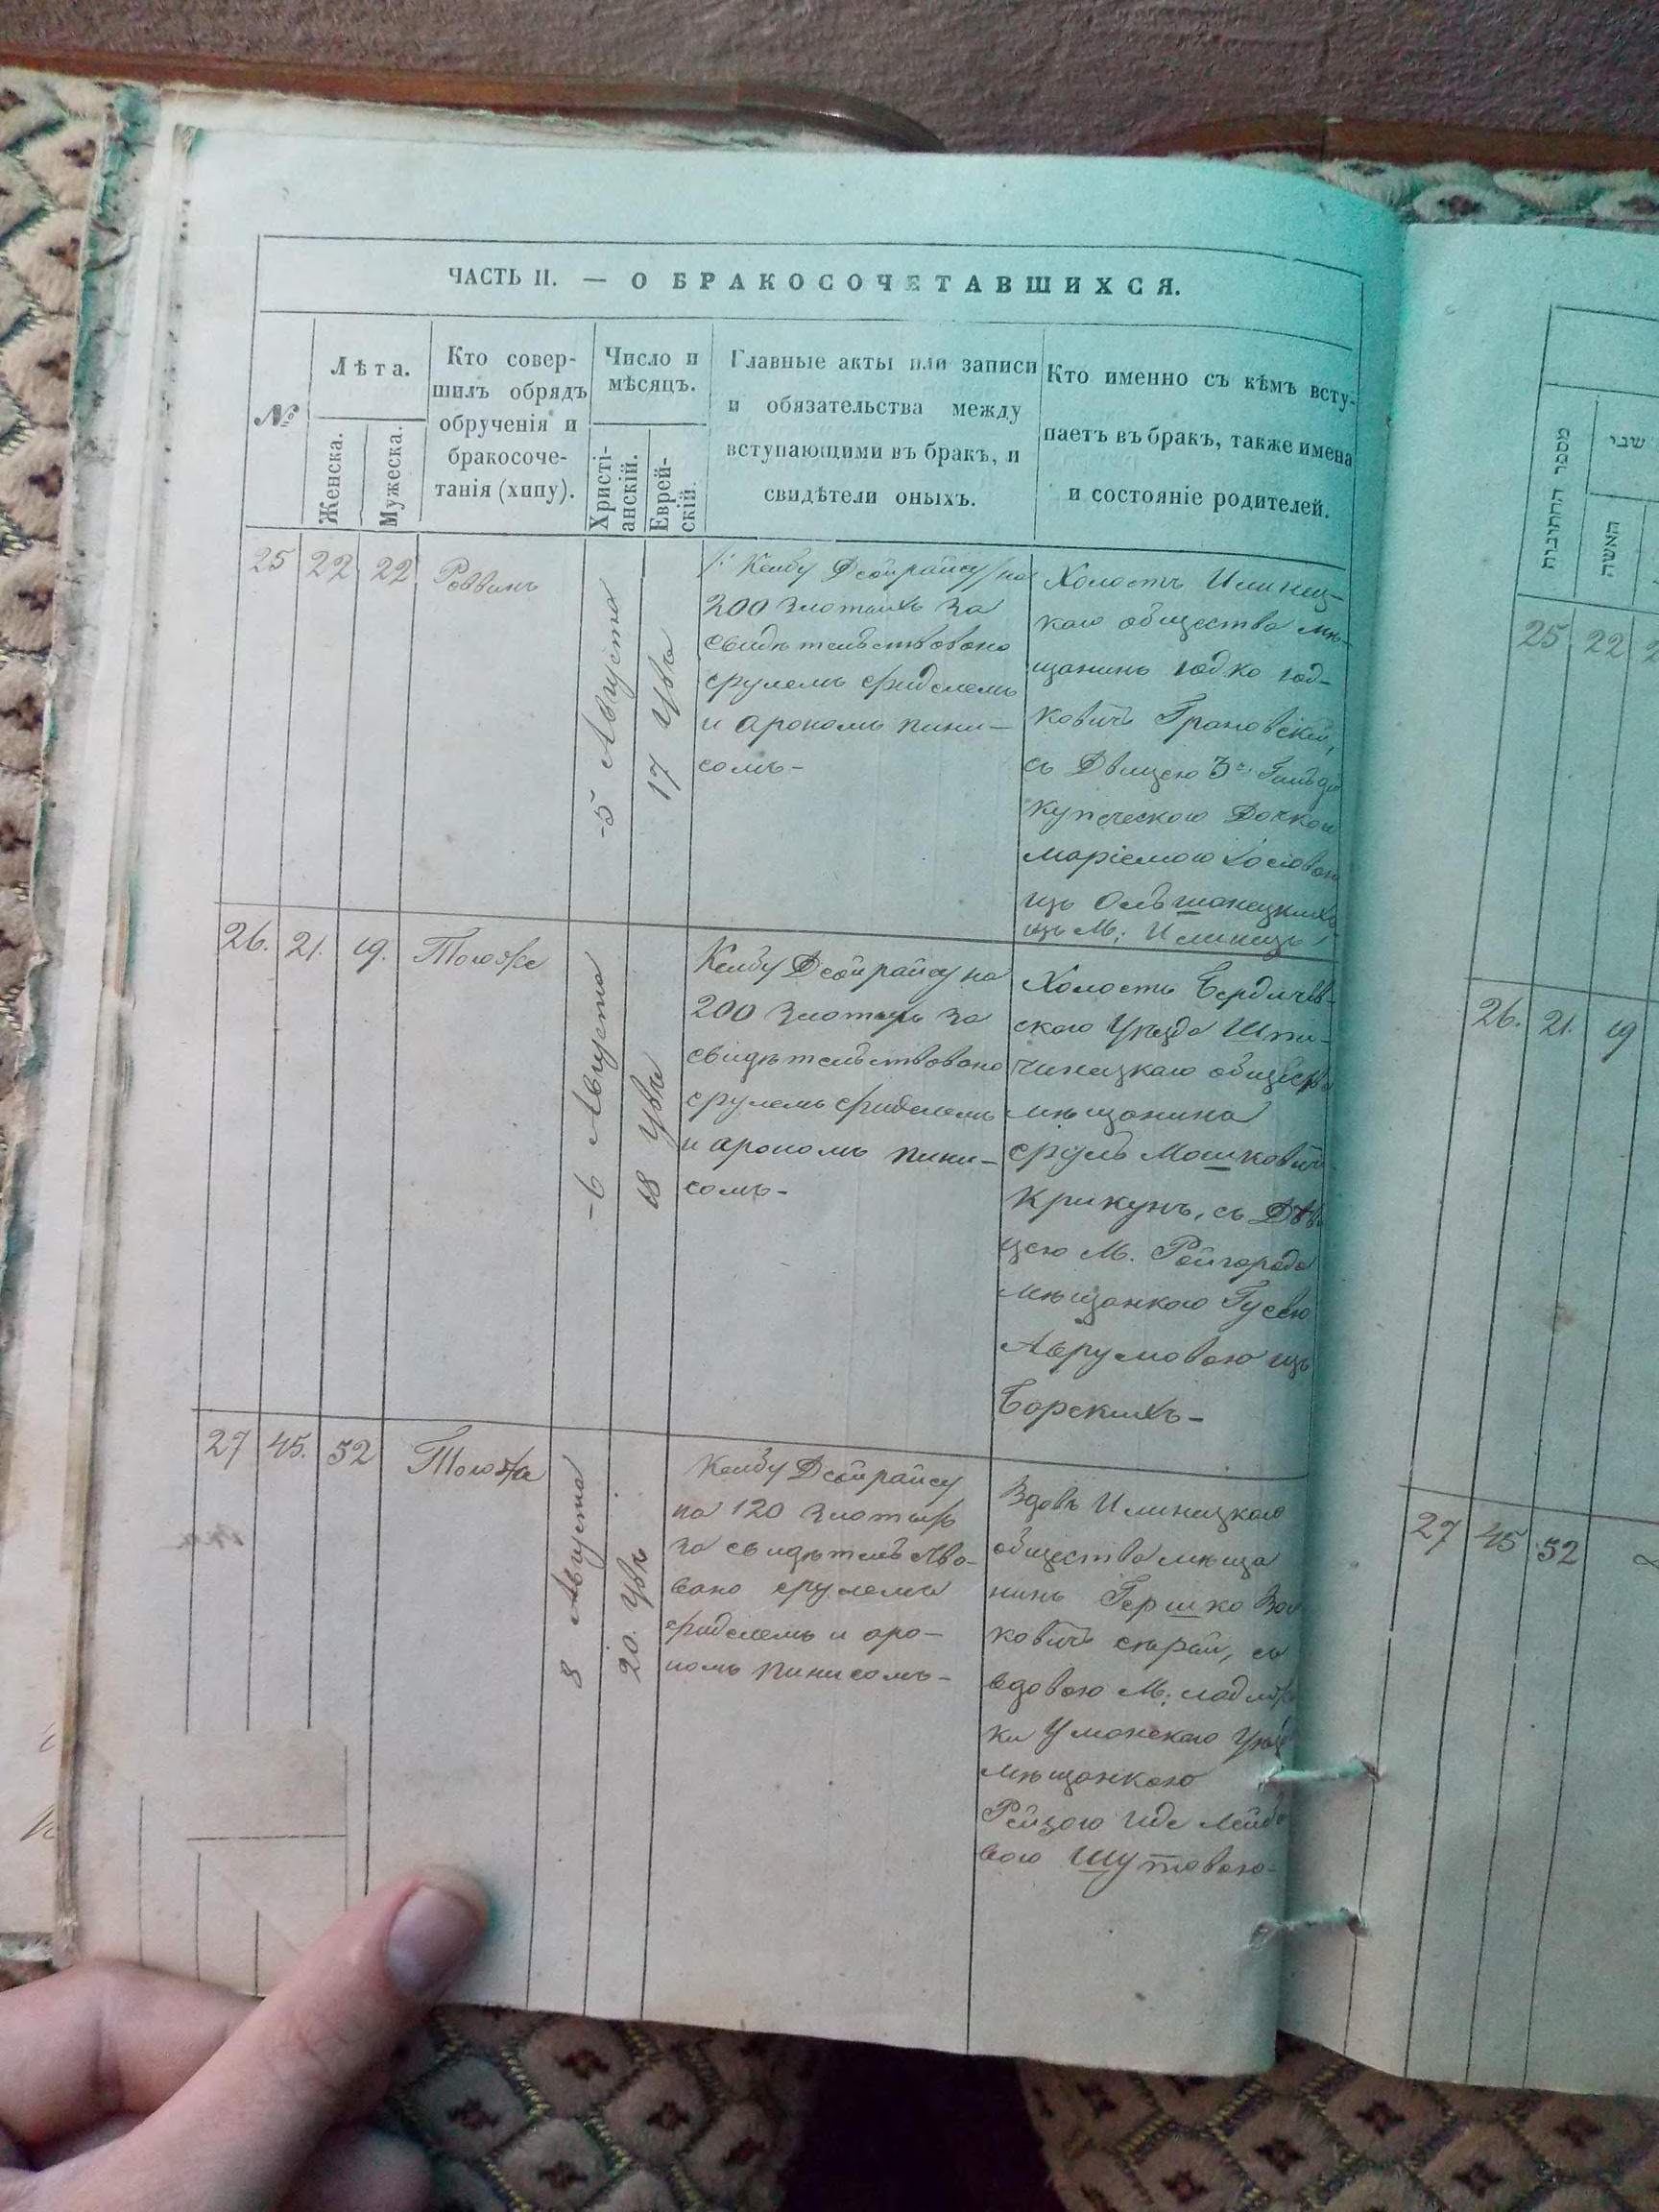 ЧАСТЬ II. — О БРАКОСОЧЕТАВШИХСЯ.
№
Лѣта.
Женска.
Мужеска.
Кто совер-
шилъ обрядъ
обрученія и
бракосоче-
танія (хипу).
Число и
мѣсяцъ.
Христі-
анскій.
Еврей-
скій.
Главные акты или записи
и обязательства между
вступающими въ бракъ, и
свидѣтели оныхъ.
Кто именно съ кѣмъ всту-
паетъ въ бракъ, также имена
и состояніе родителей.
25
22
22
Раввинъ
5 Августа
17
200 злотыхъ за
свидѣтельствовано
срулемъ фиделемъ
и арономъ пини-
сомъ-
Холостъ Илинец-
каго общества мѣ-
щанинъ іодко іод-
ковичъ Грановскій,
съ Двицею 3й Гильди
купеческою Дочкою
изъ Ольшанецкихъ
изъ М: Илинецъ
26.
21.
19.
Тогоже
6 Августа
18
200 злотыхъ за
свидѣтельствовано
срулемъ фиделемъ
и арономъ пини-
сомъ-
Холостъ Бердичев-
скаго Уѣзда Шпи-
чинецкаго общества
мѣщанина
сруль Мошковичъ
Крикунъ, съ Дѣв
цею М. Райгорода
мѣщанкою Гусею
Аврумовою изъ
Борскихъ-
27
45.
52
Тогоже
8 Августа
20.
на 120 злотыхъ
за свидѣтельство-
вано срулемъ
фиделемъ и аро-
номъ пинисомъ-
Вдовъ Илинецкаго
общества мѣща
нинъ Гершко
ковичъ съ
вдовою М:
ки Уманскаго Уѣз
мѣщанкою
Рейзою Лейбо
вою Шутовою-
מספר החתונות
שני
האשה
25
22
26.
21.
19
27
45
52